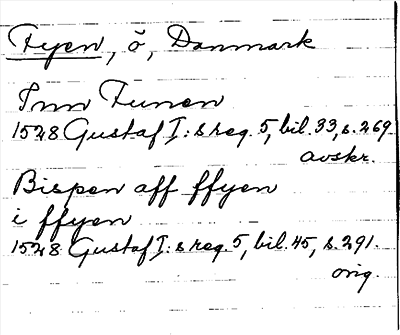 Fyen, ö, Danmark
Inn Funen
1528 Gustaf I:s reg. 5, bil. 33, s. 269.
avskr.
Bispen aff ffyen
i ffyen
1528 Gustaf I:s reg. 5, bil. 45, s. 291.
orig.